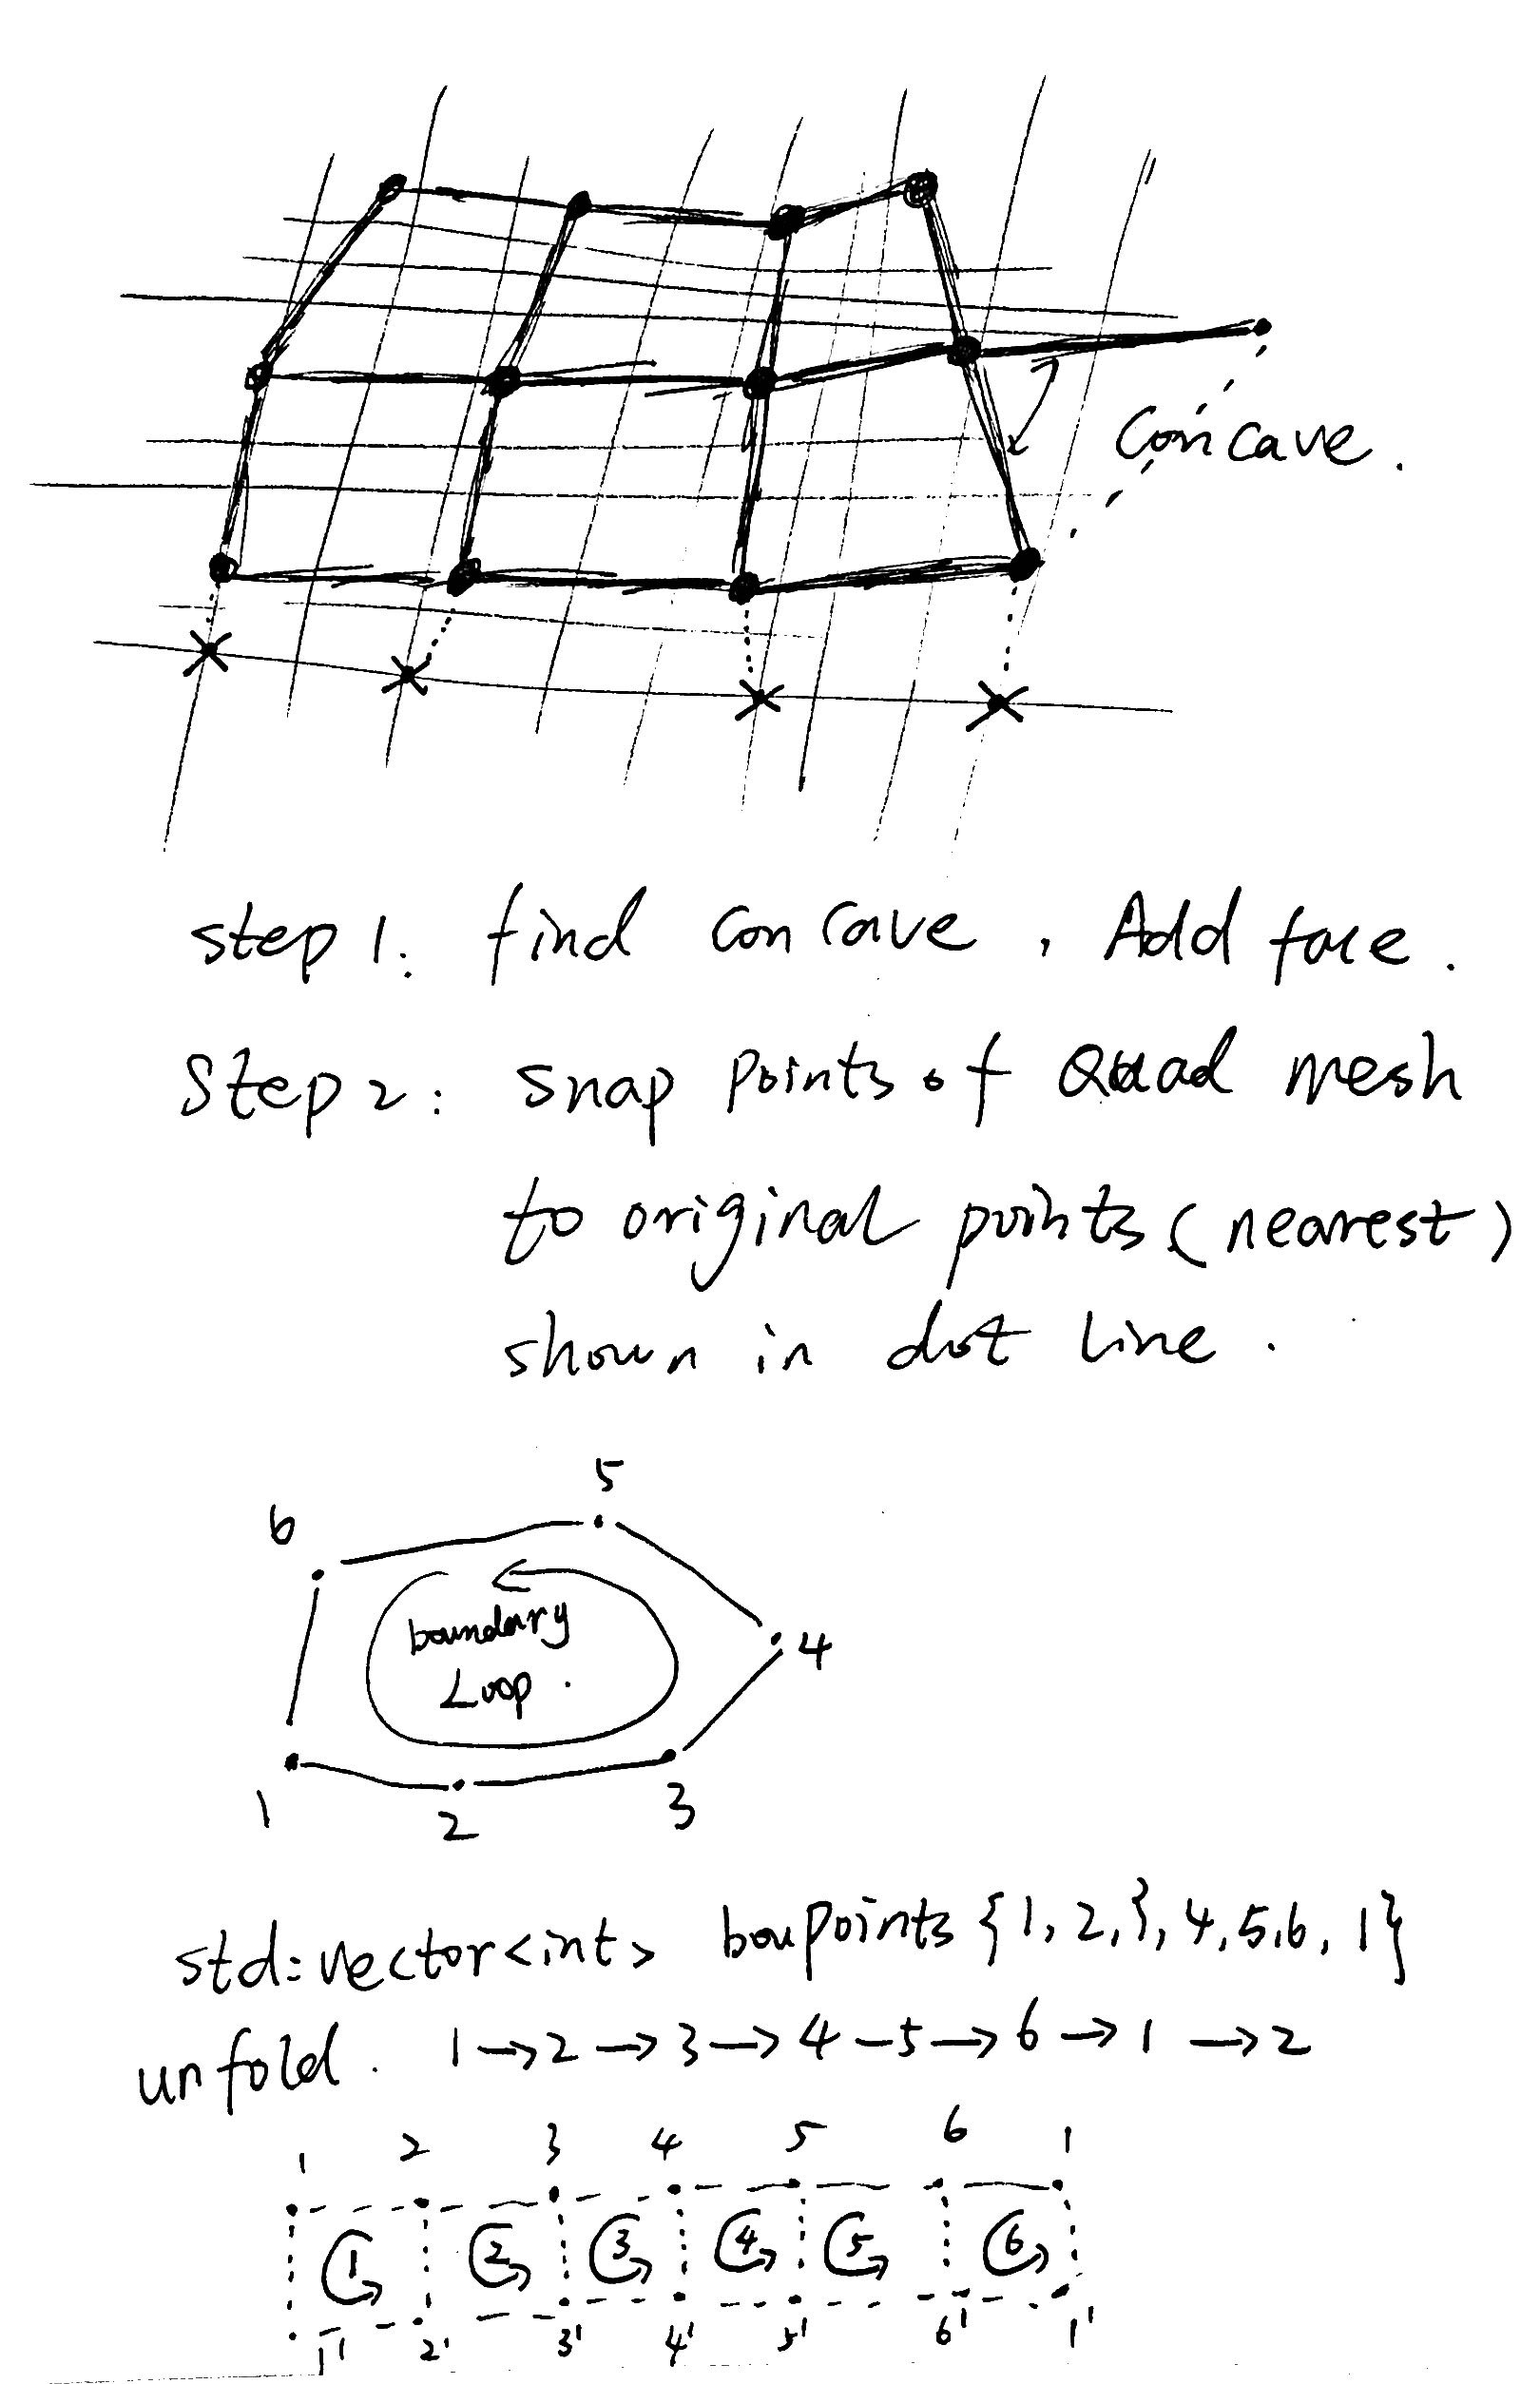 Concave.
step 1: find concave, Add face.
Step 2: snap points of Quad mesh
to original points (nearest)
shown in dot line.
5
6
boundary
Loop.
4
1
2
3
std::vector<int> bouPoints {1, 2, 3, 4, 5, 6, 1}
unfold. 1→2→3→4-5→6→1→2
1 2 3 4 5 6 1
1 2 3 4 5 6
1' 2' 3' 4' 5' 6' 1'